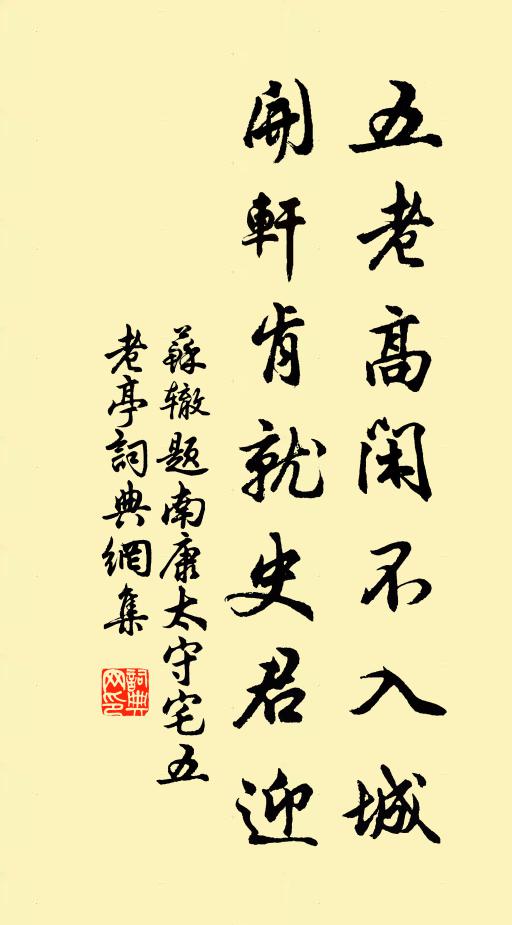 五老高閑不入城
開軒肯就史君迎
蘇辙题南康太守宅五
老亭詞典網集
詞典网印